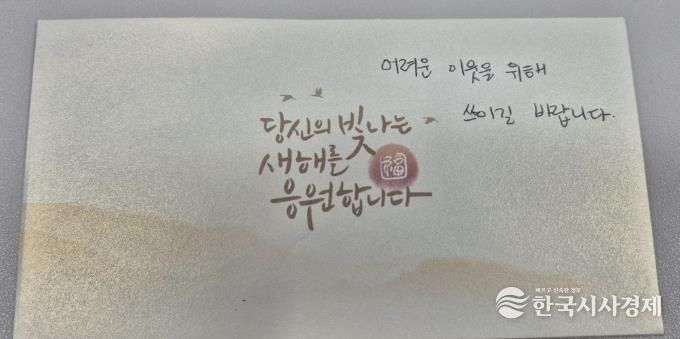 어려운 이웃을 위해
쓰이길 바랍니다.
당신의 빛나는
새해를
福
응원합니다
빠르고 진솔한 정보
한국시사경제